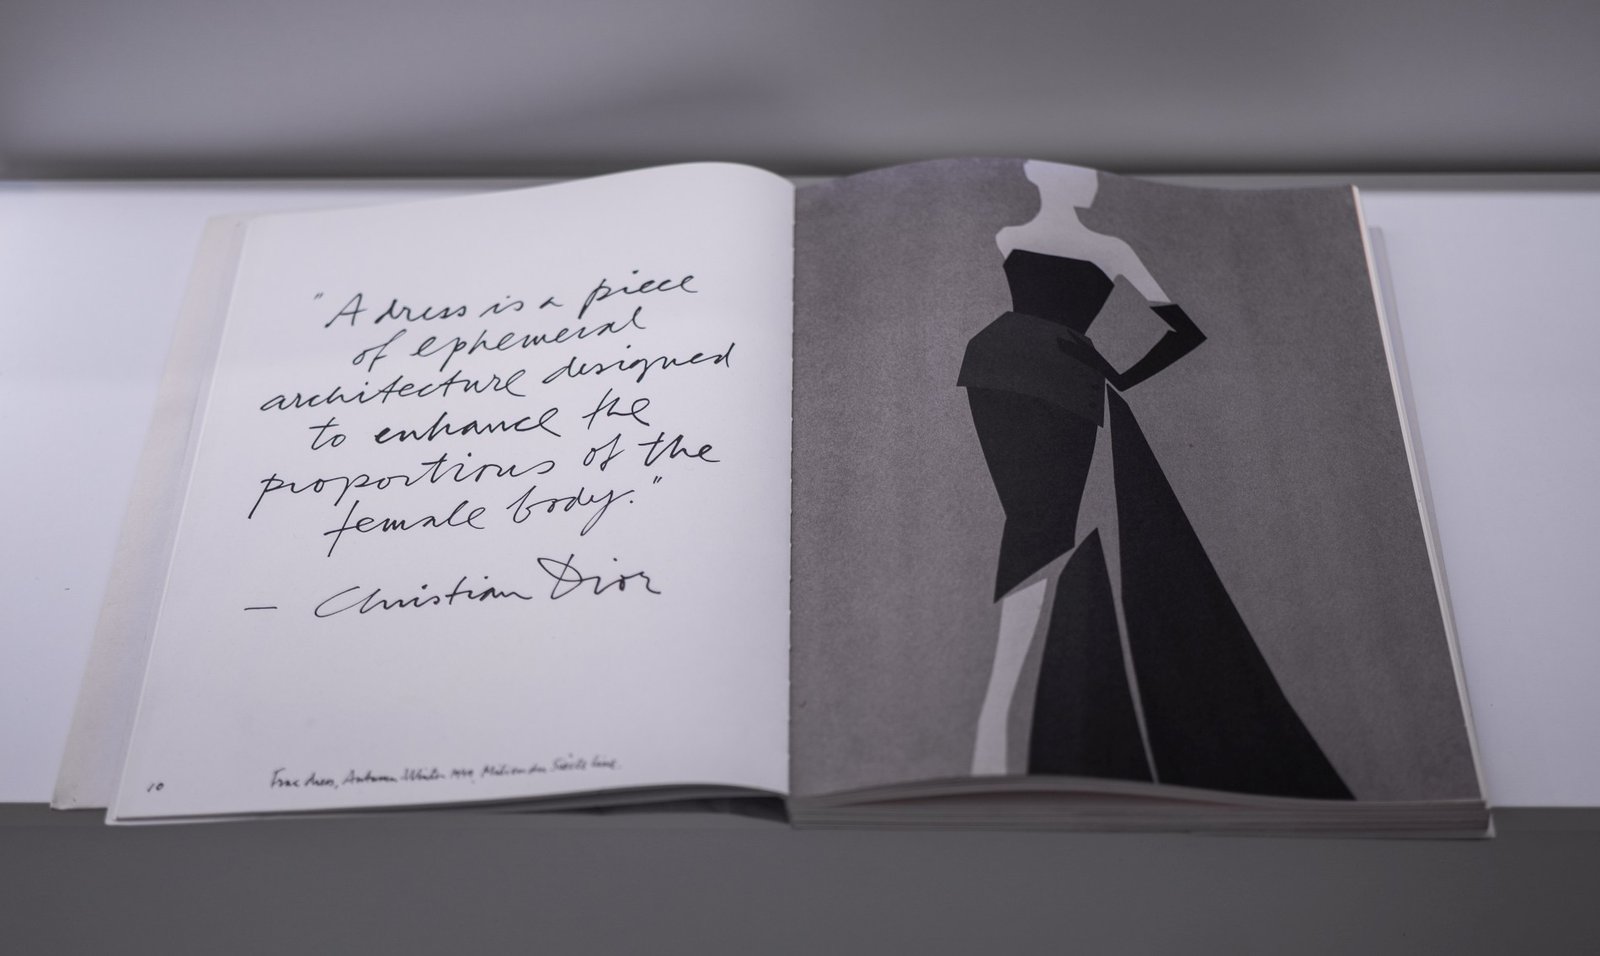 "A dress is a piece
of ephemeral
architecture designed
to enhance the
proportions of the
female body."
— Christian Dior
10
dress, Autumn-Winter 1949, Milieu du Siècle line.